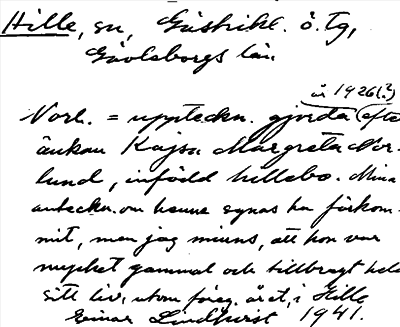 Hille, sn, Gästrikl. ö. tg,
Gävleborgs län.
år 1926(?)
Vorl. = uppteckn. gjorda (efte
änkan Kajsa Margreta Nor-
lund, infödd hillebo. Mina
anteckn. om henne synas ha förkom-
mit, men jag minns, att hon var
mycket gammal och tillbragt hela
sitt liv, utom föreg. året, i Hille
Einar Lindhvist 1941.